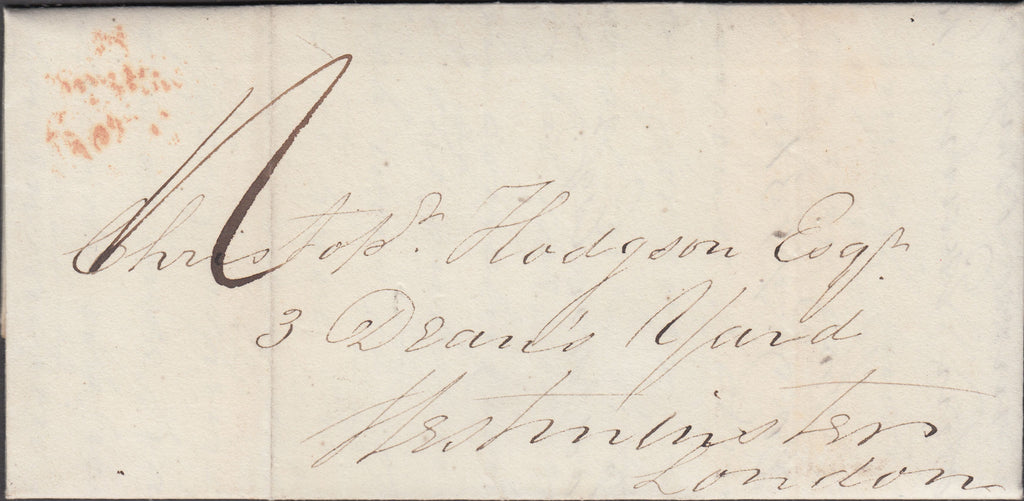 Christopr. Hodgson Esqr.
3 Dean's Yard
Westminster
London